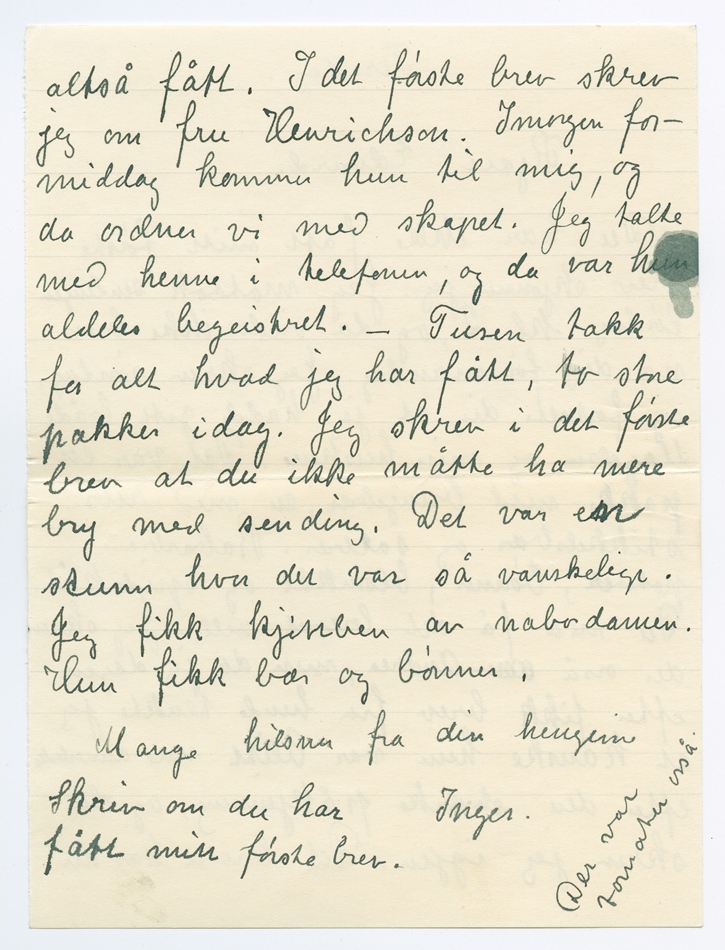 altså fått. I det første brev skrev
jeg om fru Henrichson. Imorgen for-
middag kommer hun til mig, og
da ordner vi med skapet. Jeg talte
med henne i telefonen, og da var hun
aldeles begeistret. — Tusen takk
for alt hvad jeg har fått, to store
pakker idag. Jeg skrev i det første
brev at du ikke måtte ha mere
bry med sending. Det var en
stunn hvor det var så vanskelige.
Jeg fikk kjøttben av nabodamen.
Hun fikk bær og bønner.
Mange hilsner fra din hengivne
Inger.
Skriv om du har
fått mitt første brev.
Der var
tomater også.